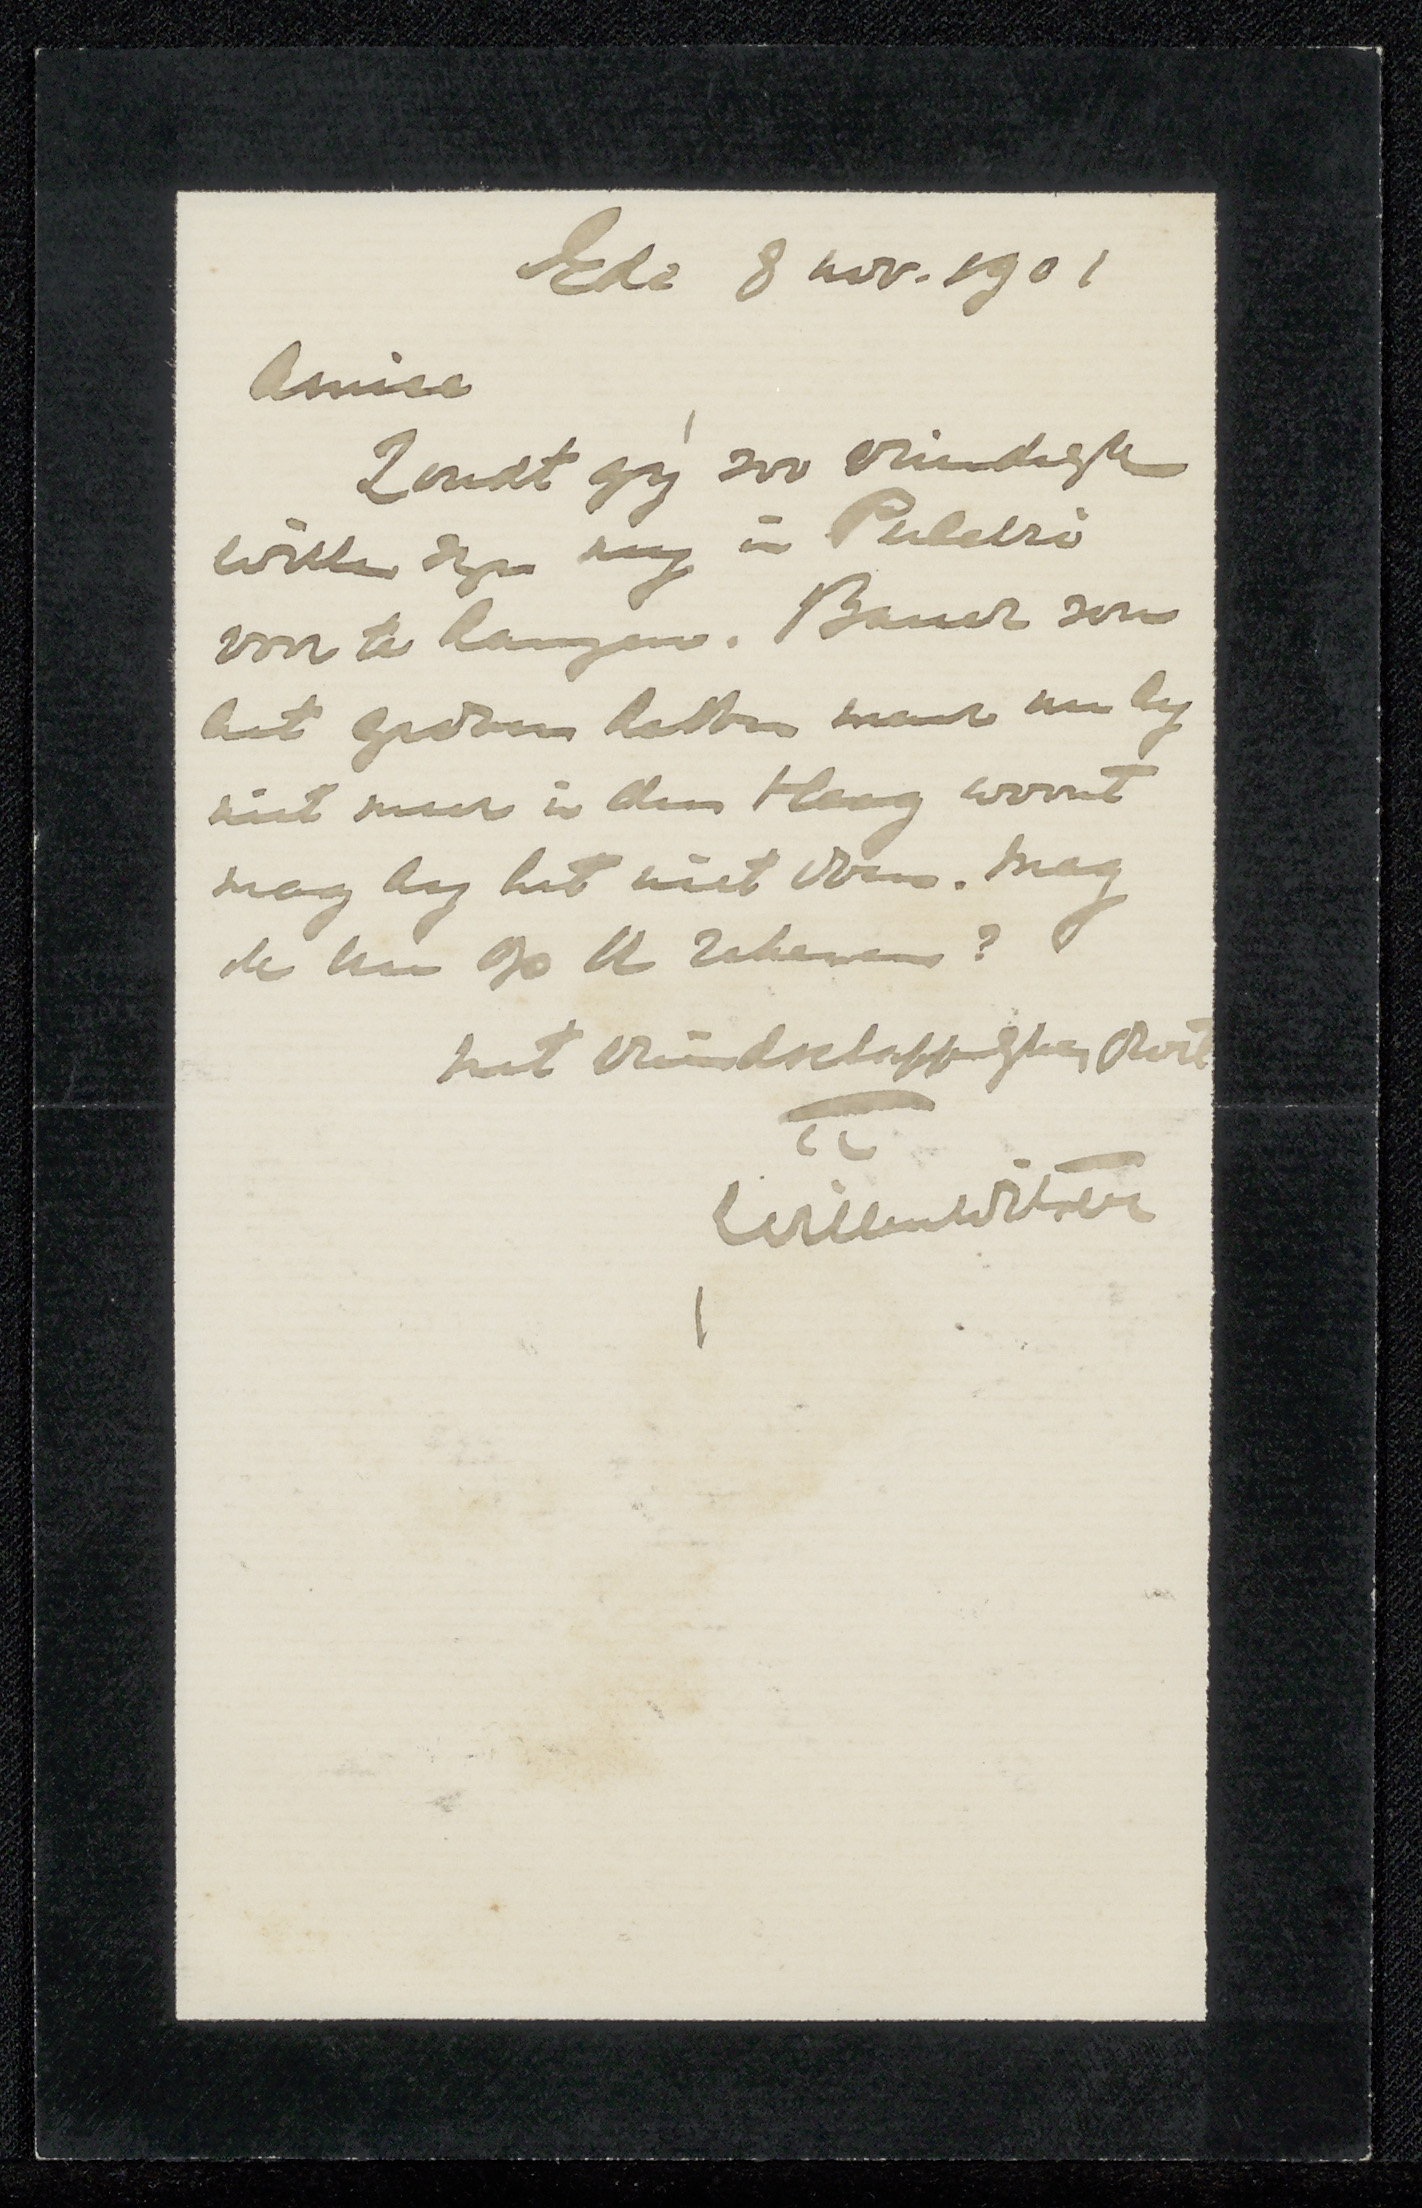 Ede 8 nov. 1901
Amice
Zoudt gij zoo vriendelijk
willen zijn mij in Pulchri
voor te hangen. Bauer zou
het gedaan hebben maar nu hij
niet meer in den Haag woont
mag hij het niet doen. Mag
ik hier op U rekenen?
met vriendschappelijken groet
tt
Willem Witsen